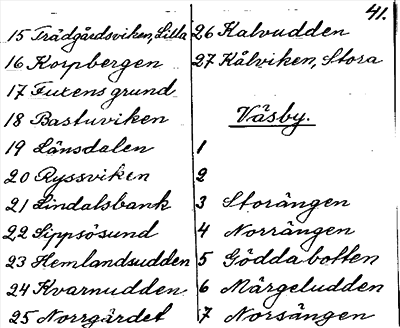 41.
15 Trädgårdsviken, Lilla
16 Korpbergen
17 Furensgrund
18 Bastuviken
19 Länsdalen
20 Ryssviken
21 Lindalsbank
22 Sippsösund
23 Hemlandsudden
24 Kvarnudden
25 Norrgärdet
26 Kalvudden
27 Kålviken, Stora
Väsby.
1
2
3 Storängen
4 Norrängen
5 Göddabotten
6 Märgeludden
7 Norsängen